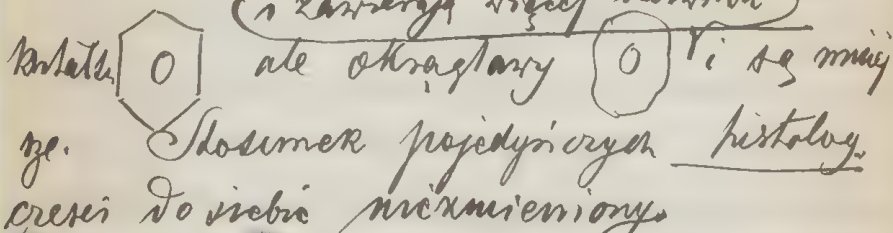 (i zawierają więcej
kształtu ale okrągławy i są mniej
sze. Stosunek pojedyńczych histolog.
części do siebie niezmieniony.